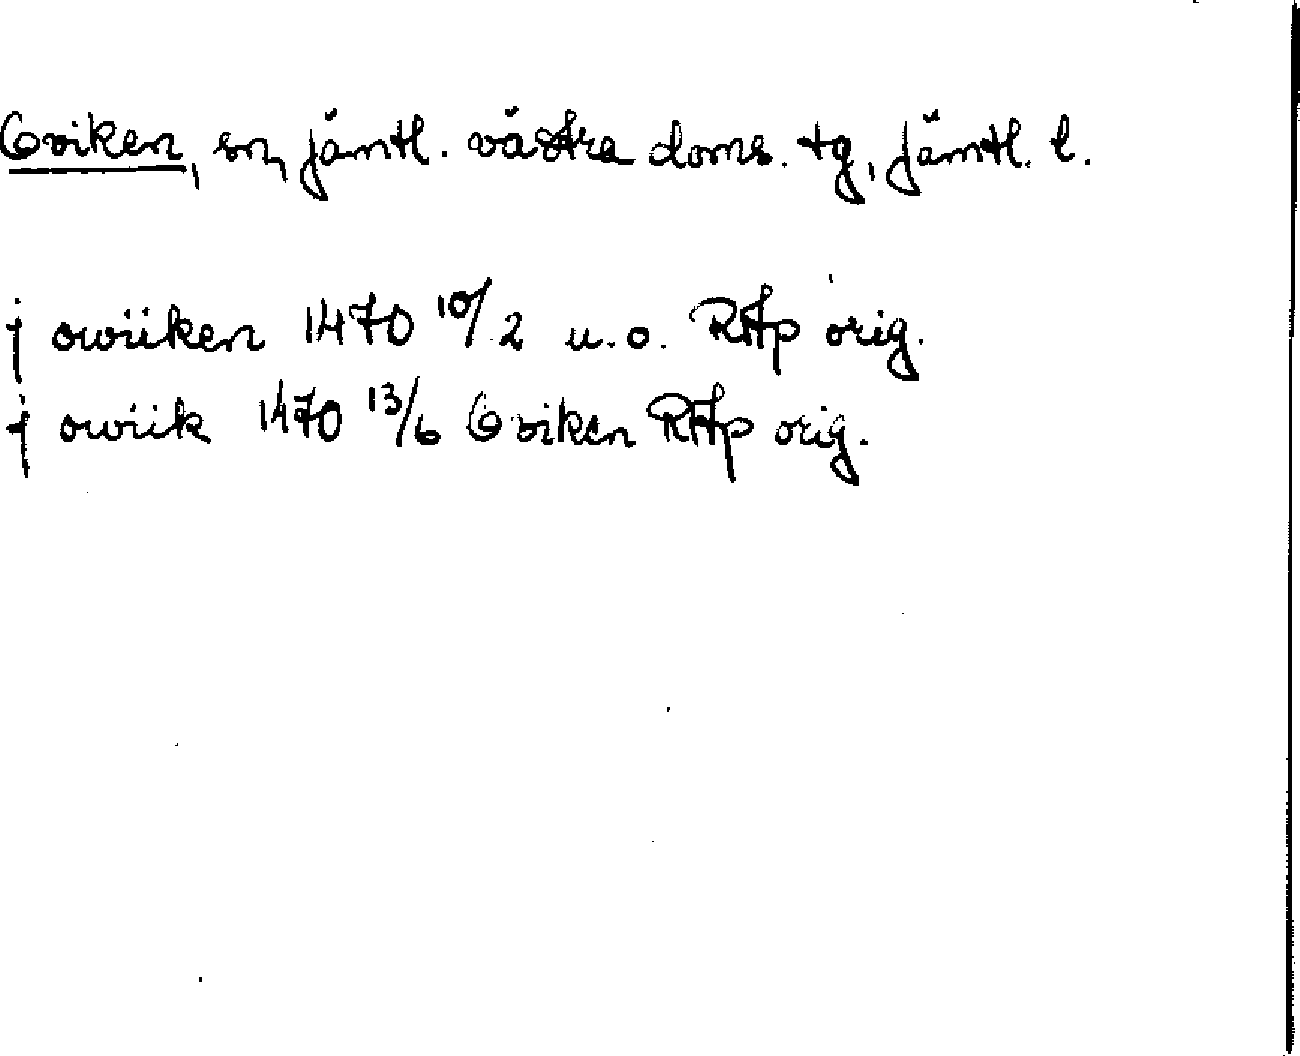 Oviken, sn, Jämtl. västra doms. tg, Jämtl. l.
j owiiken 1470 10/2 u.o. RAp orig.
j owiik 1470 13/6 Oviken RAp orig.